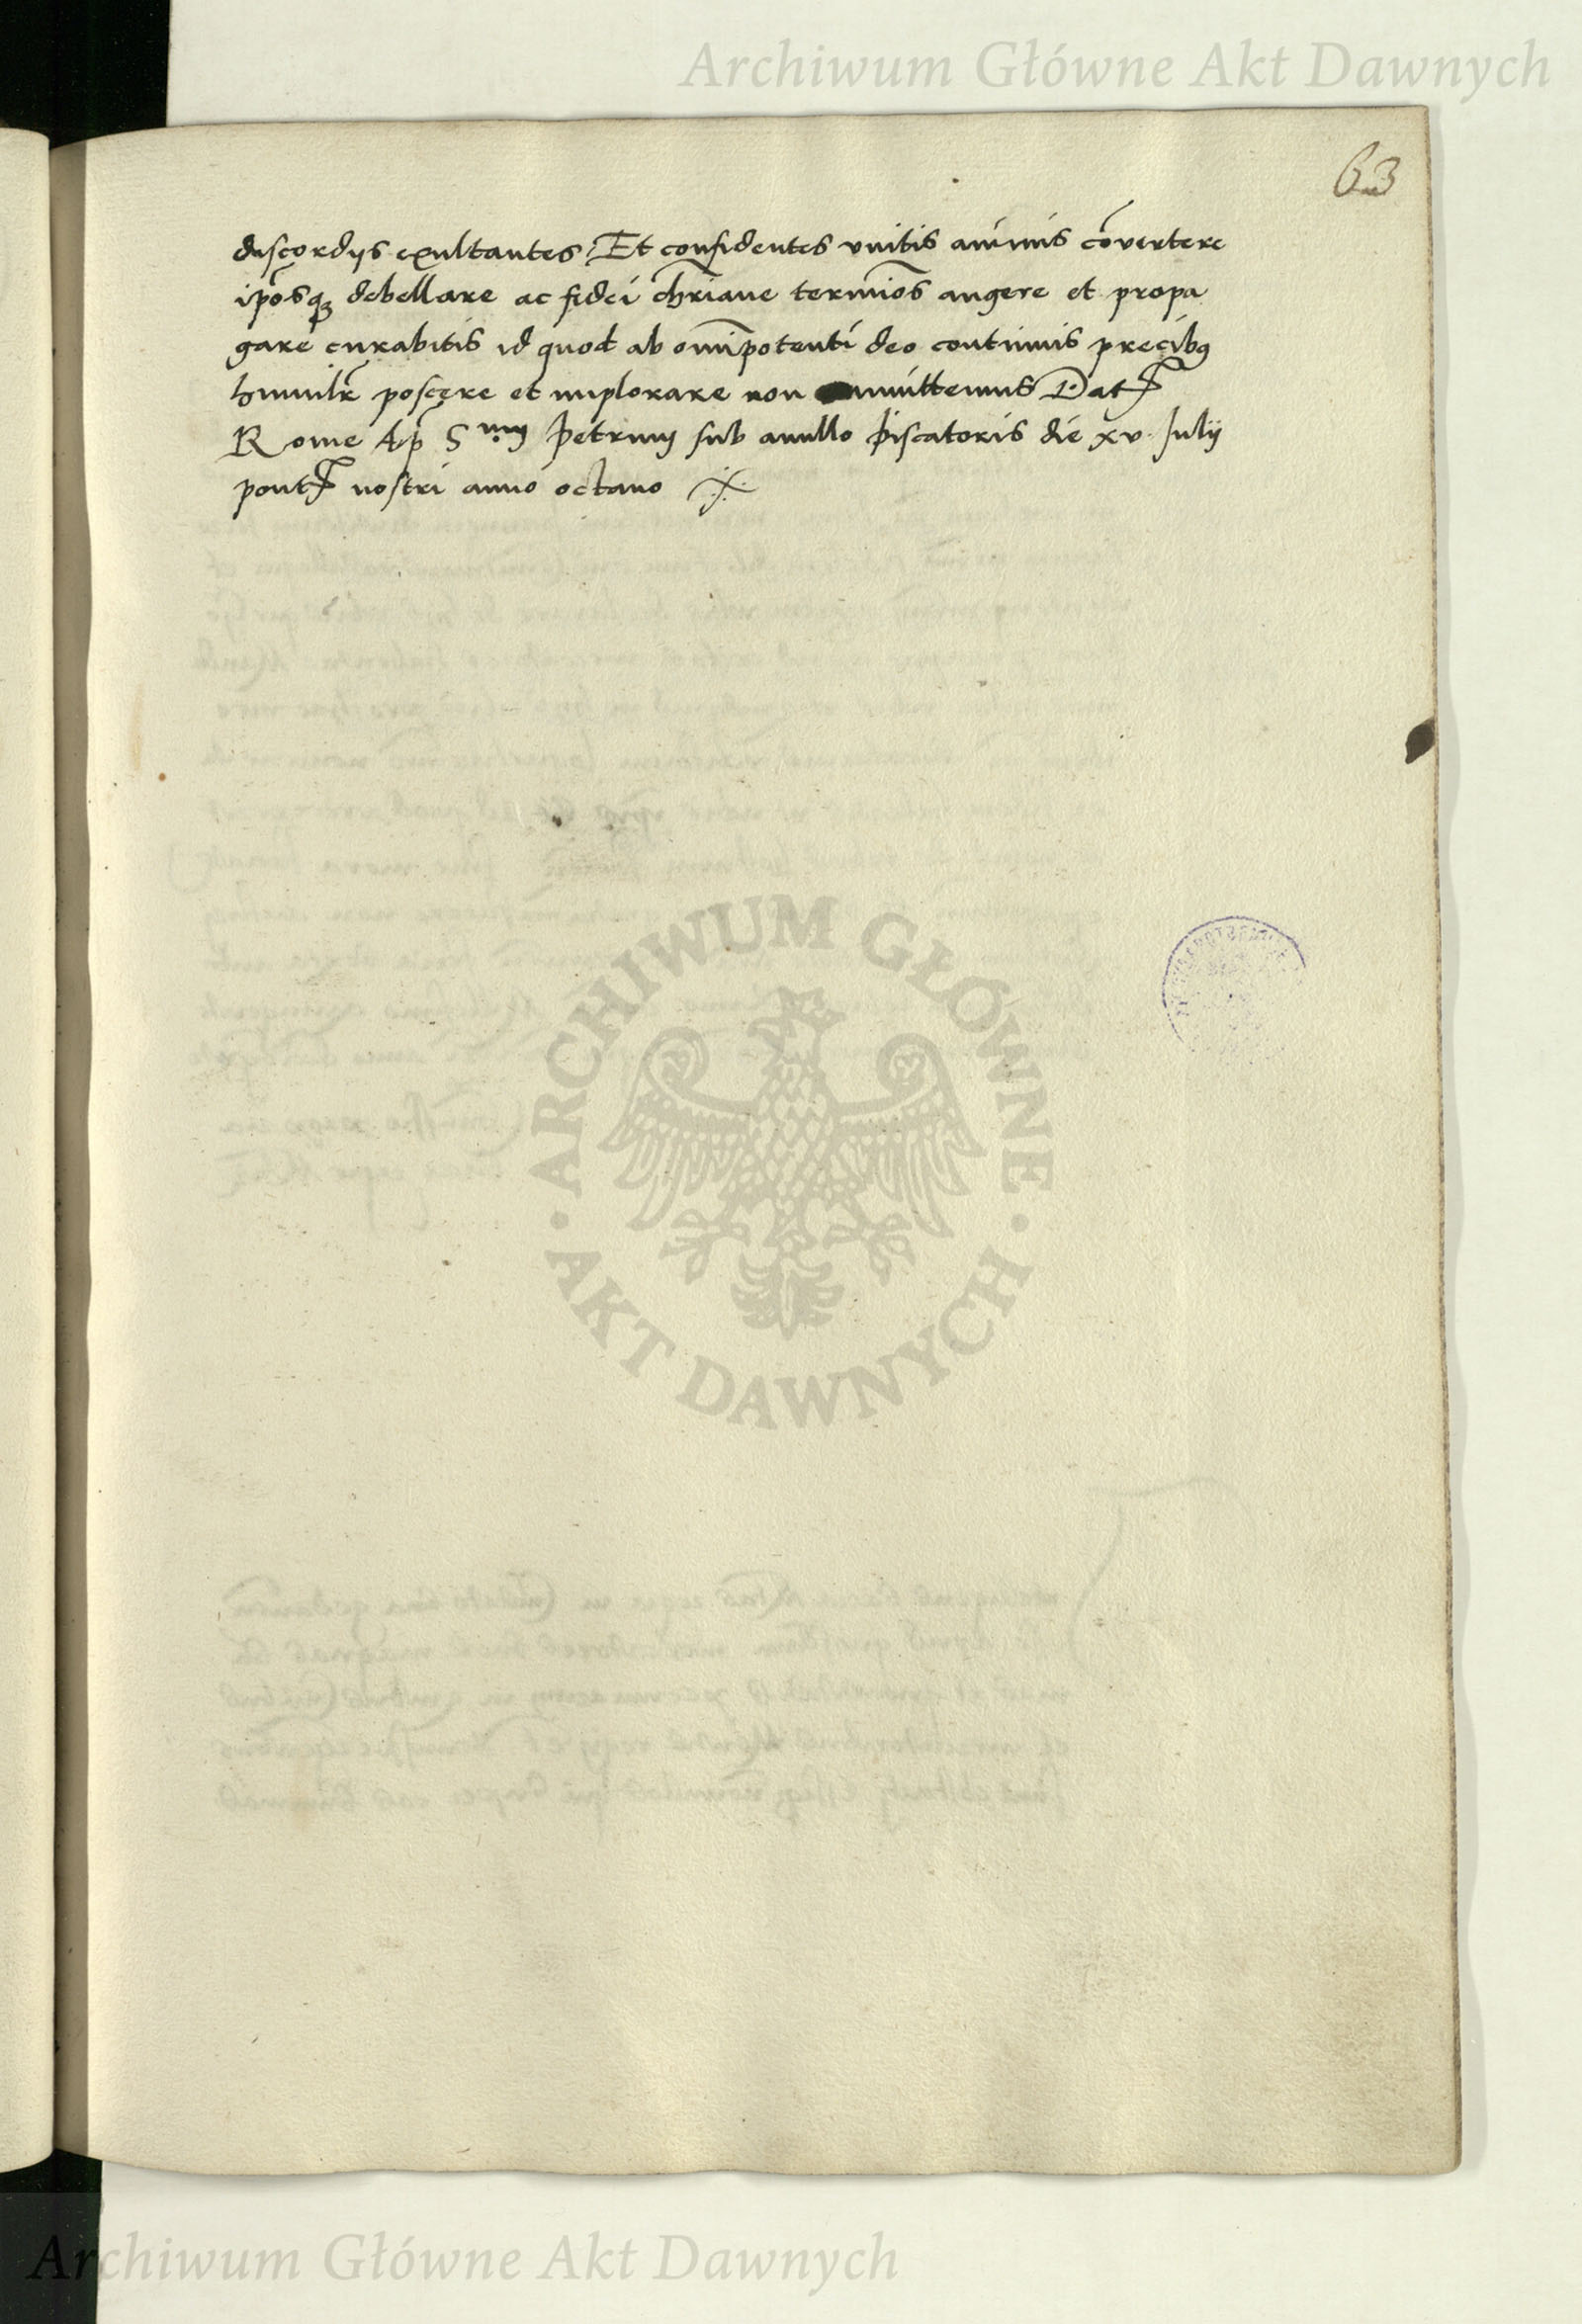 Archiwum Główne Akt Dawnych
63
discordijs exultantes Et confidentes vnitis animis cōvertere
ip̄osq3 debellare ac fidei chr̄iane termīos augere et propa
gare curabitis id quod ab om̄ipotenti deo continuis precibꝯ
humilr̄ poscere et implorare non omittemus Dat
Rome Ap̄ S Petrum sub anullo piscatoris die xv Julij
pont nostri anno octauo
ARCHIWUM GŁÓWNE
AKT DAWNYCH
Archiwum Główne Akt Dawnych